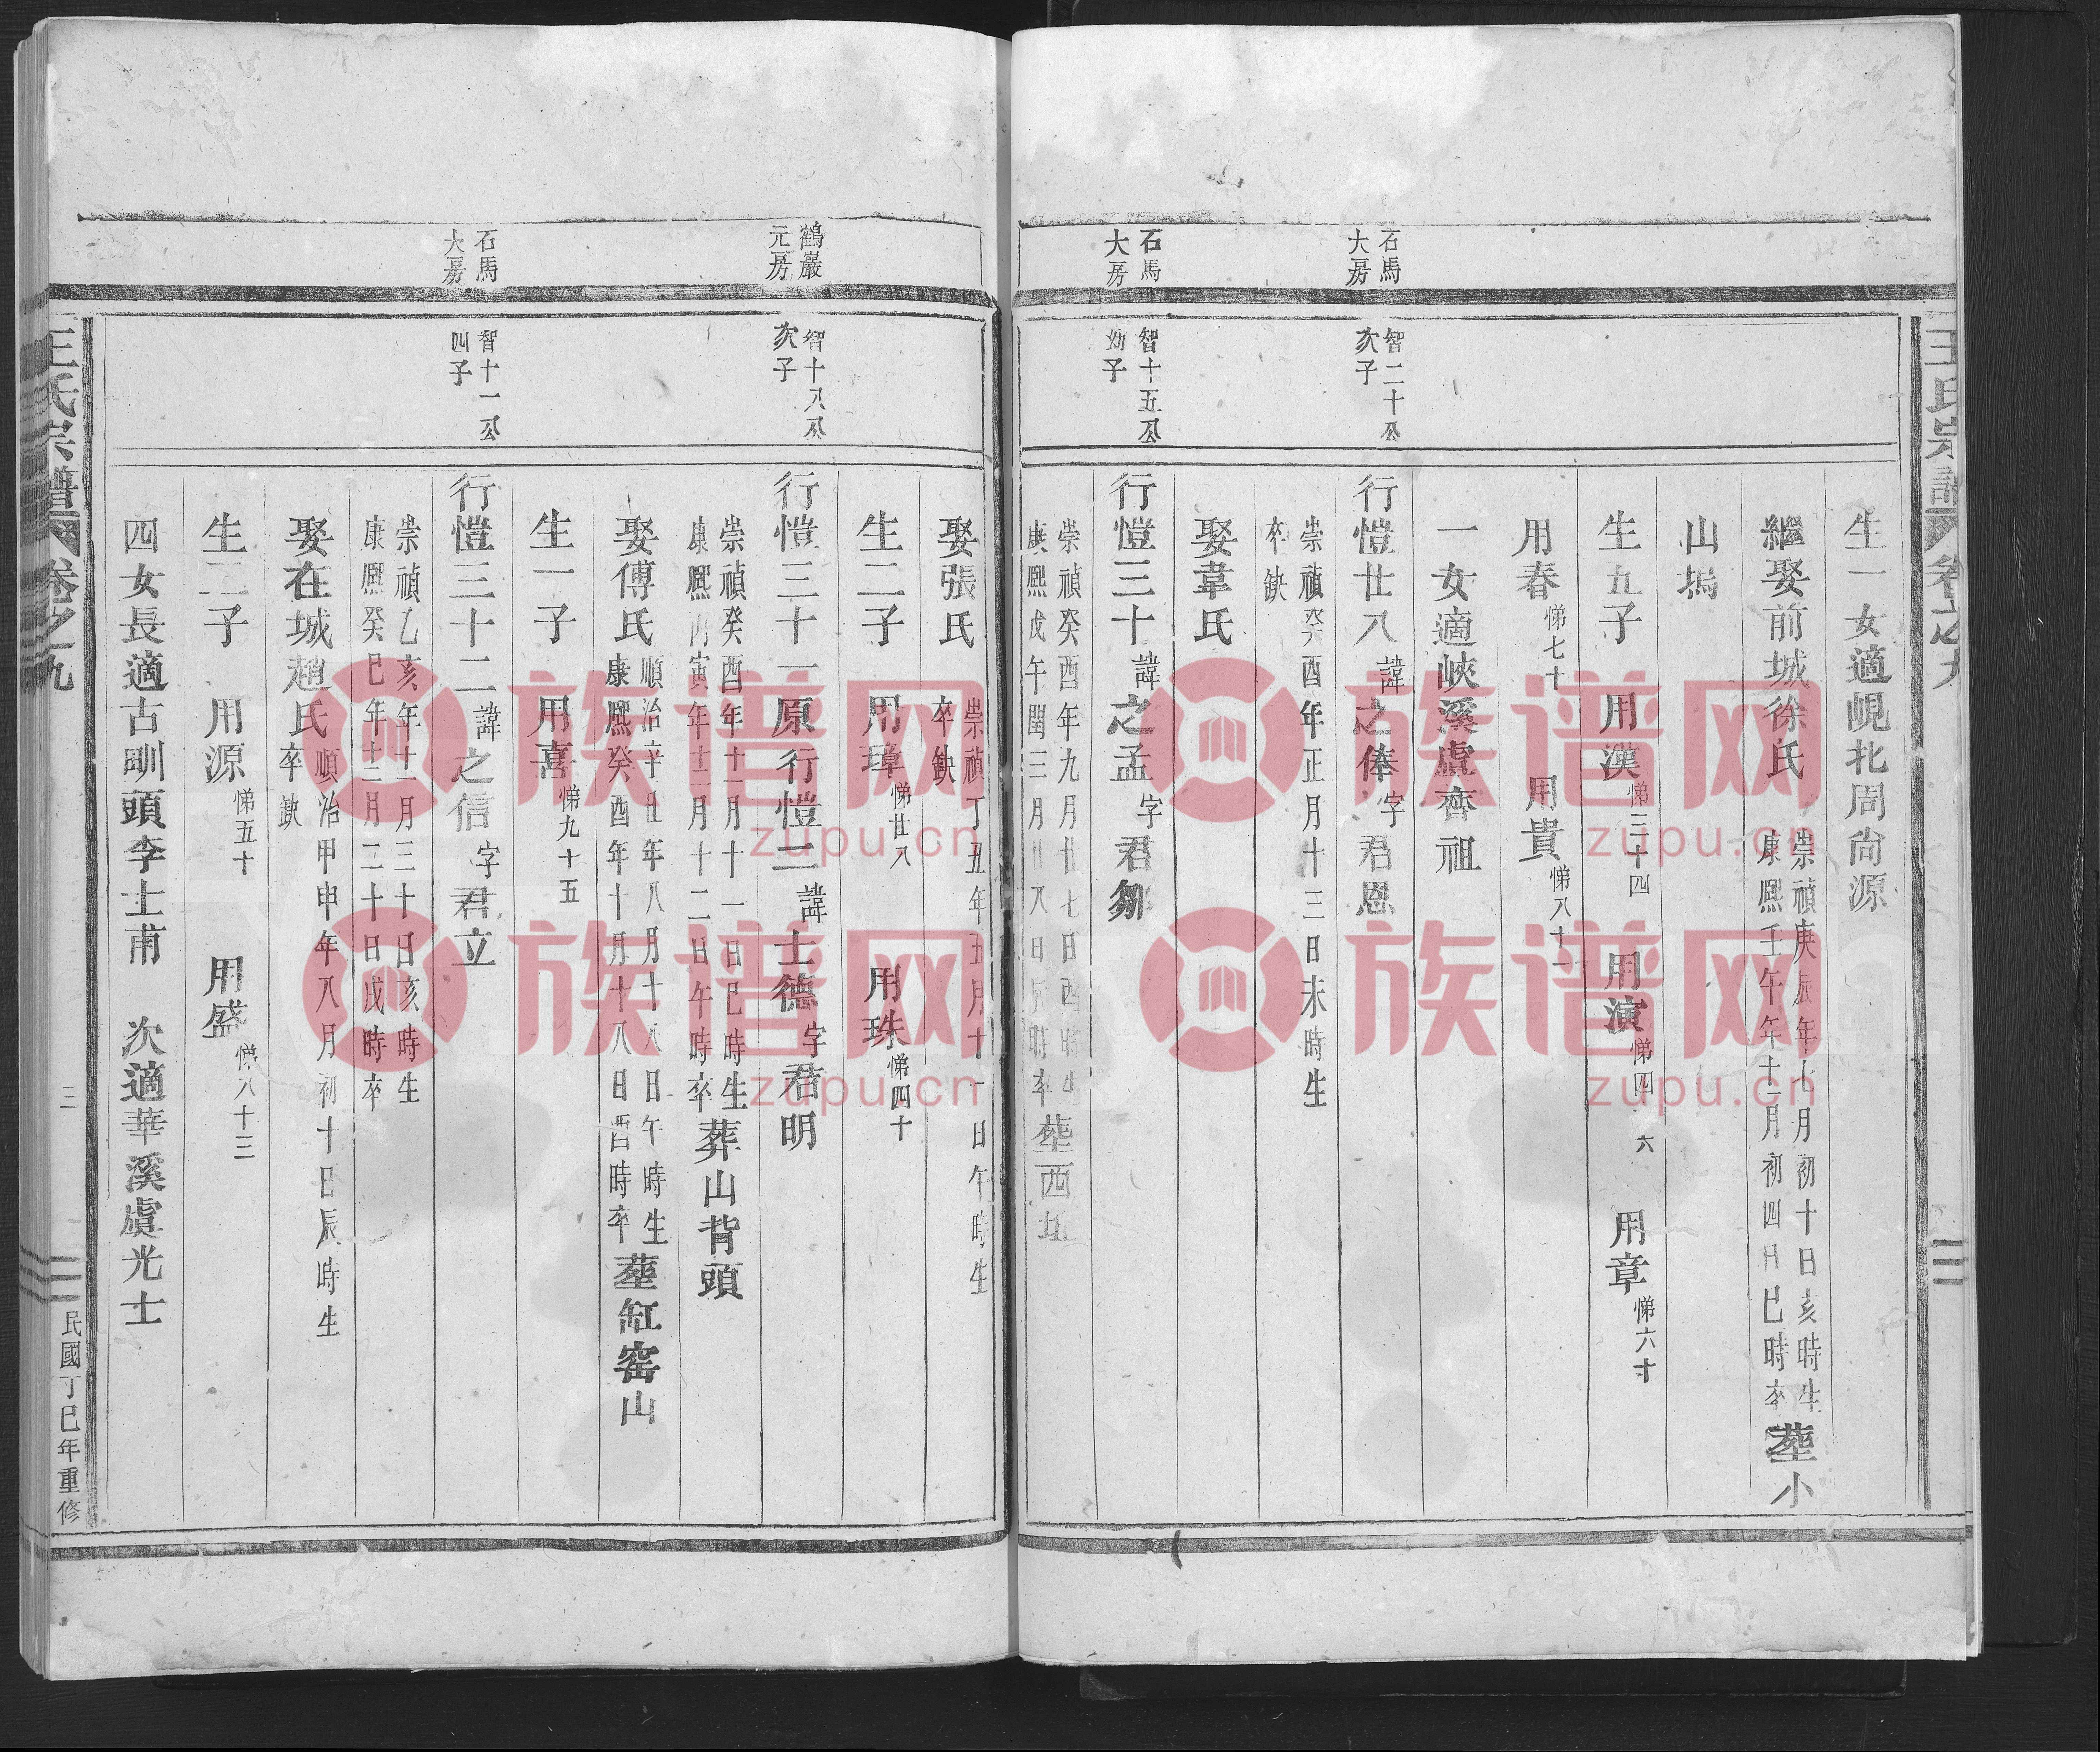 王氏宗譜 卷之九
生一女適峴北周尚源
繼娶前城徐氏 崇禎庚辰年十月初十日亥時生 康熙壬午年十二月初四日巳時卒 塟小
山塢
生五子 用漢 悌三十四 用演 悌四 六 用章 悌六十
用春 悌七十 用貴 悌八十一
一女適峽溪盧齊祖
石馬大房
智二十公次子
行愷廿八 諱之俸 字君恩
崇禎癸酉年正月十三日未時生
卒缺
娶韋氏
石馬大房
智十五公幼子
行愷三十 諱之孟 字君鄒
崇禎癸酉年九月廿七日酉時生
康熙戊午年閏三月廿八日辰時卒 塟西坵
娶張氏 崇禎丁丑年五月十一日午時生 卒缺
生二子 用璋 悌廿八 用珠 悌四十
鶴巖元房
智十八公次子
行愷三十一 原行愷二 諱士德 字君明
崇禎癸酉年十二月十一日巳時生
康熙丙寅年十二月十二日午時卒 葬山背頭
娶傅氏 順治辛丑年八月十八日午時生 康熙癸酉年十月十八日酉時卒 塟缸窰山
生一子 用喜 悌九十五
石馬大房
智十一公四子
行愷三十二 諱之信 字君立
崇禎乙亥年十二月三十日亥時生
康熙癸巳年十二月二十日戌時卒
娶在城趙氏 順治甲申年八月初十日辰時生 卒缺
生二子 用源 悌五十 用盛 悌八十三
四女長適古㽛頭李士甫 次適華溪虞光士
王氏宗譜 卷之九 三 民國丁巳年重修
族谱网
zupu.cn
族谱网
zupu.cn
族谱网
zupu.cn
族谱网
zupu.cn